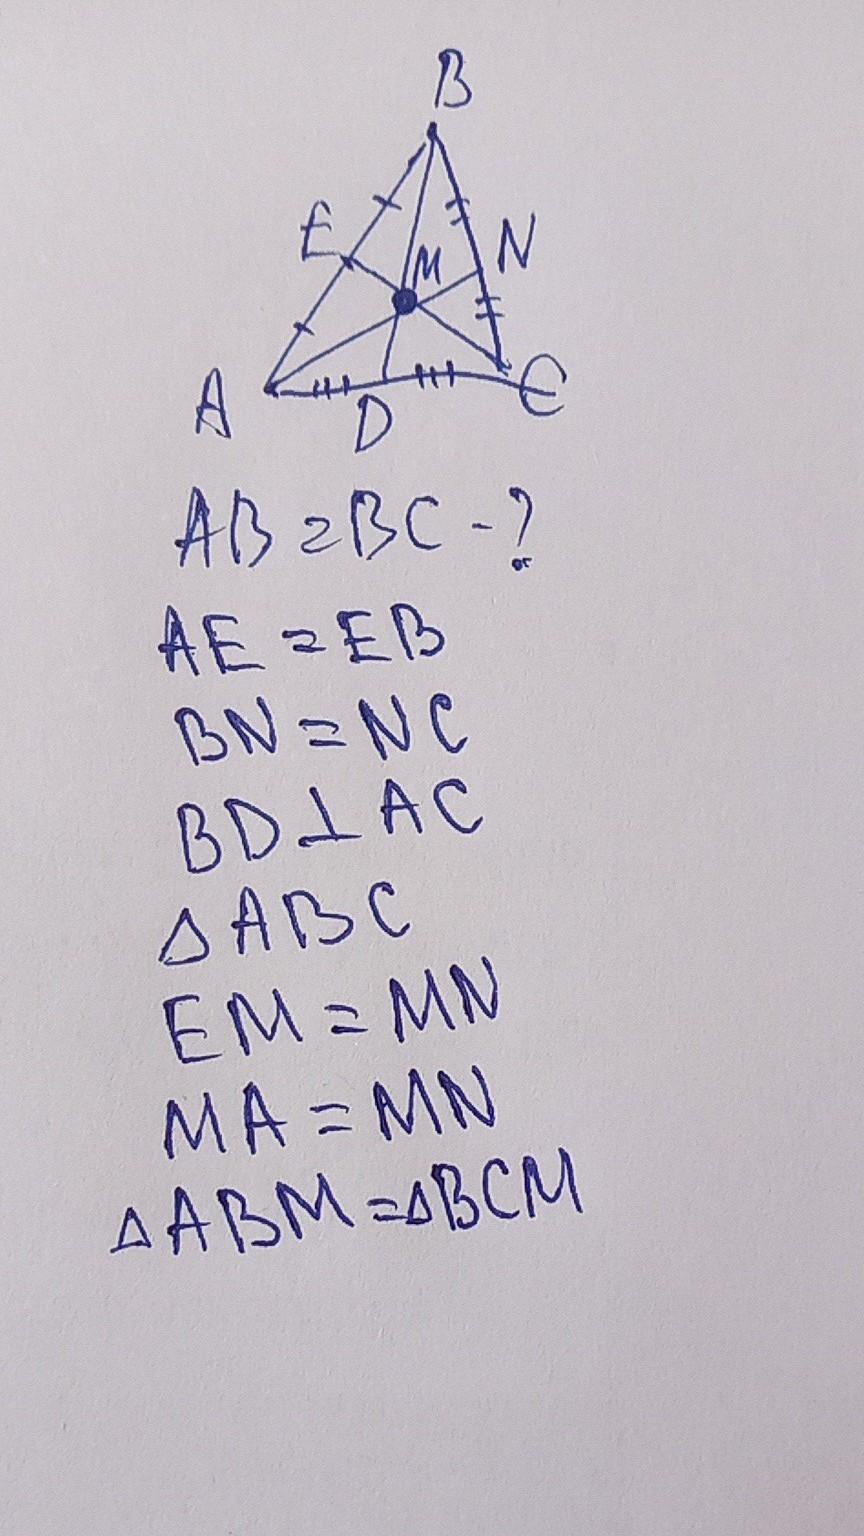 B
E
N
M
A
D
C
AB = BC - ?
AE = EB
BN = NC
BD ⊥ AC
△ABC
EM = MN
MA = MN
△ABM = △BCM